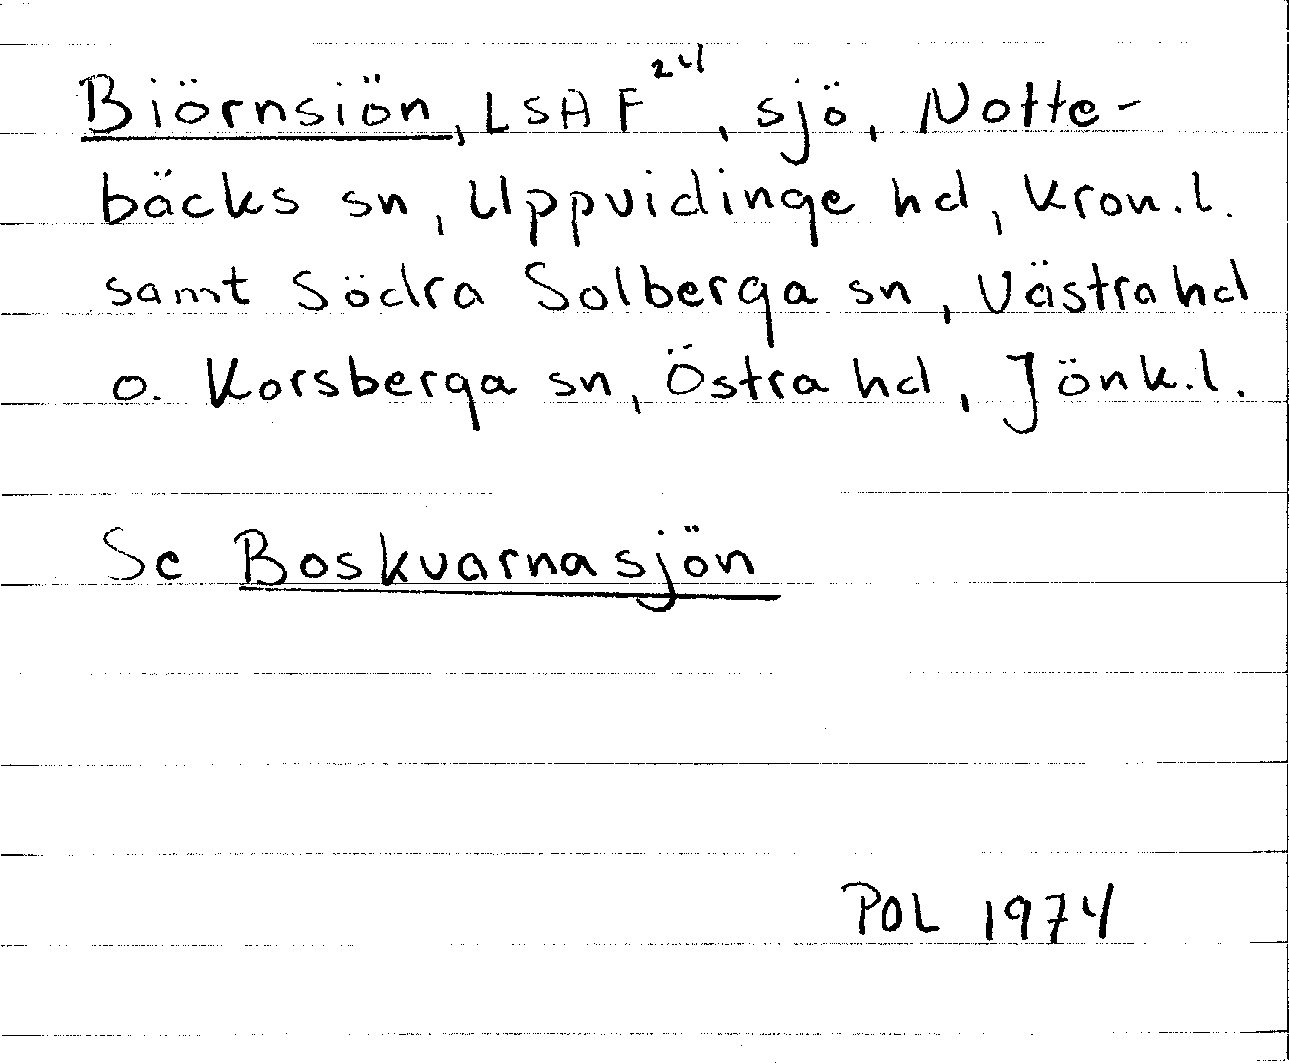 Biörnsiön, LSA F²⁴, sjö, Notte-
bäcks sn, Uppvidinge hd, Kron.l.
samt Södra Solberga sn, Västra hd
o. Korsberga sn, Östra hd, Jönk.l.
Se Boskvarnasjön
POL 1974